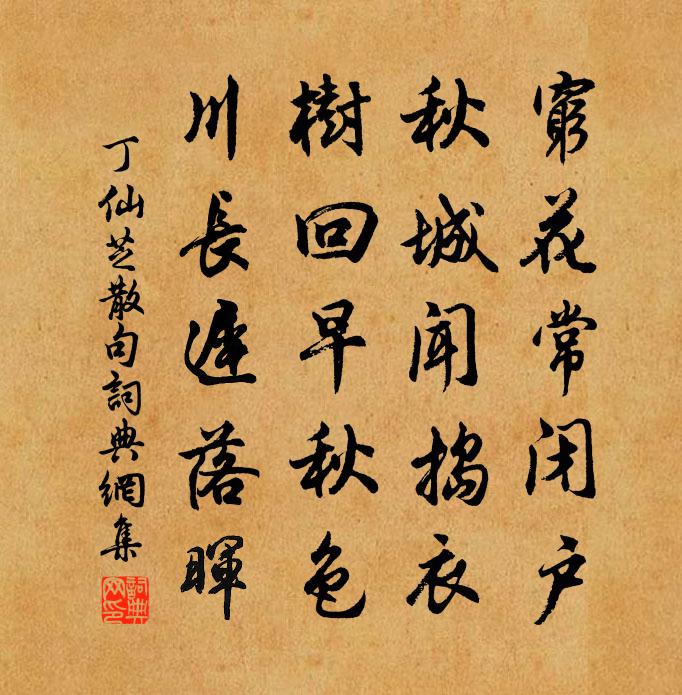 窮花常闭户
秋城闻搗衣
樹回早秋色
川長遲落暉
丁仙芝散句詞典網集
詞典網印